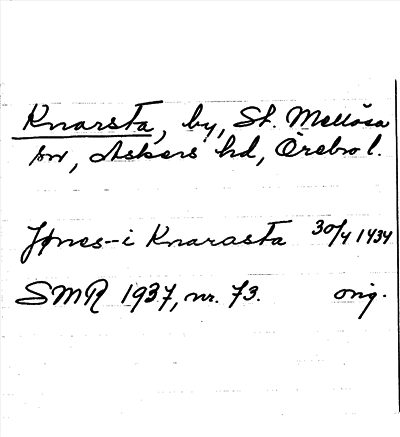 Knarsta, by, St. Mellösa
sn, Askers hd, Örebro l.
Jønes-i Knarasta 30/4 1434
SMR 1937, nr. 73. orig.